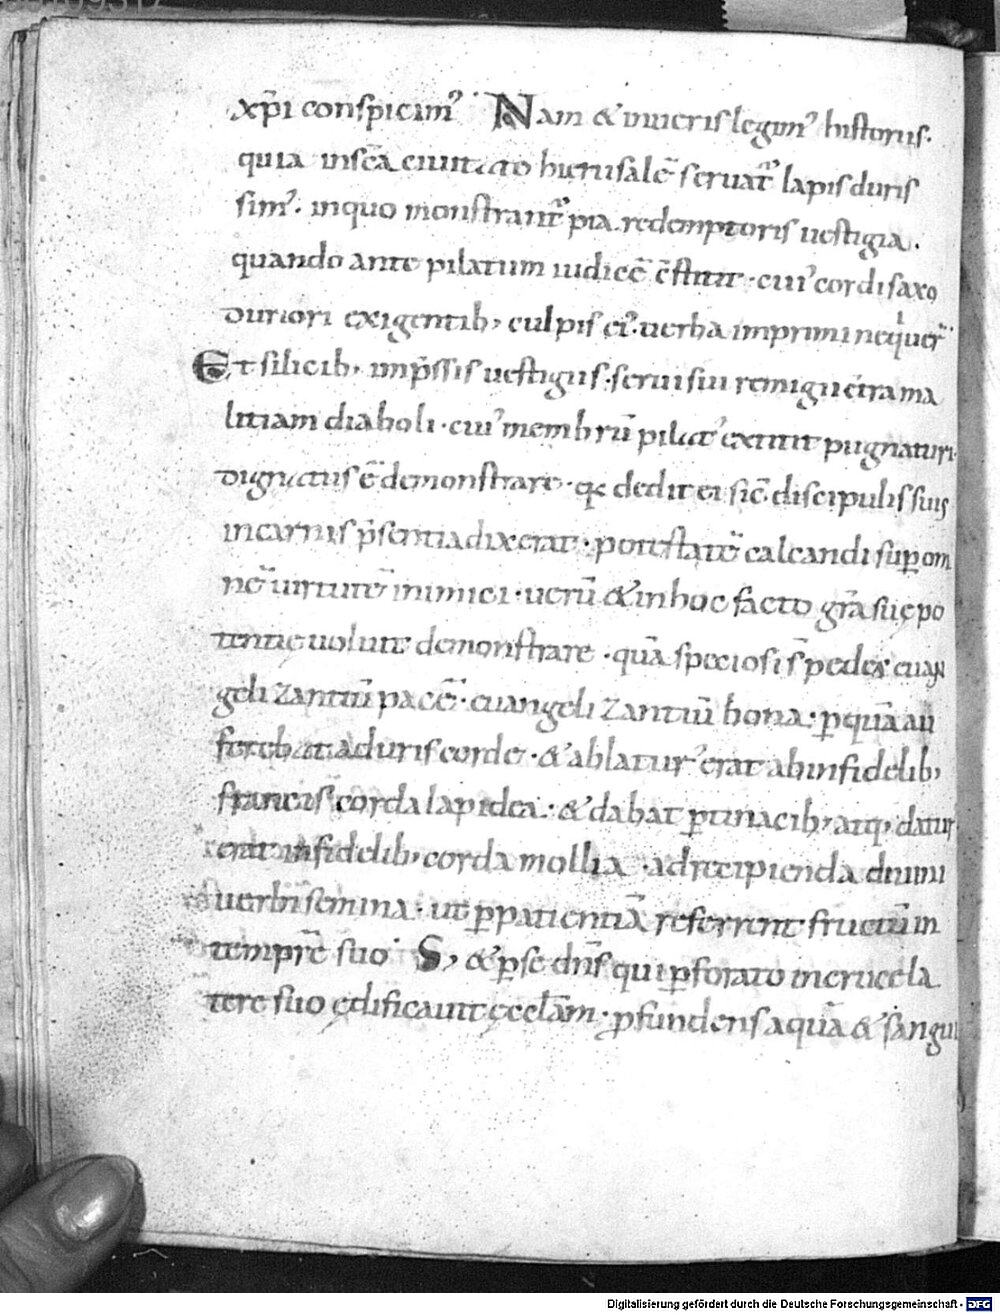 xp̄i conspicim᾽ Nam & inueris legim᾽ historiis.
quia insc̄a ciuitato hierusalē seruat᷑ lapis duris
sim᾽. inquo monstrant᷑ pia redemptoris uestigia.
quando ante pilatum iudicē c̄stitit · cui᾽ cordi saxo
duriori exigentib; culpis ei᾽ uerba imprimi nequier̄
Et silicib; imp̄ssis uestigiis. serui sui remigii c̄tra ma
litiam diaboli · cui᾽ membrū pilat᾽ extitit pugnaturi
dignatus ē demonstrare · qđ dedit ei sic̄ discipulis suis
incarnis p̄sentia dixerat · potestatē calcandi sup om
nē uirtutē inimici · uerū & inhoc facto gr̄a suę po
tentię uoluit demonstrare · quā speciosi s̄ pedes euan
gelizantiū pacē · euangelizantiū bona · p quā au
ferebat aduris corde · & ablatur᾽ erat abinfidelib;
francis corda lapidea · & dabat ptinacib; atq; datur᾽
erat infidelib; corda mollia · adrecipienda diuini
uerbi semina · ut p patientiā referrent fructū in
tempr̄e suo S; & p se dn̄s qui pforato incruce la
tere suo edificauit ęccl̄am · pfundens aquā & sangui
Digitalisierung gefördert durch die Deutsche Forschungsgemeinschaft - DFG